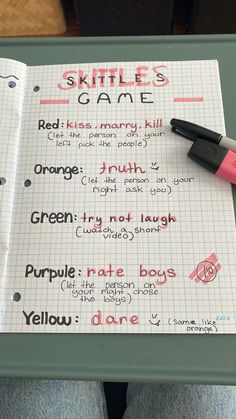 SKITTLES
GAME
Red: kiss, marry, kill
(let the person on your
left pick the people)
Orange: truth
(let the person on your
right ask you)
Green: try not laugh
(watch a short
video)
Purpule: rate boys
(let the person on
your right, chose
the boys)
Yellow: dare
(Same like
orange)